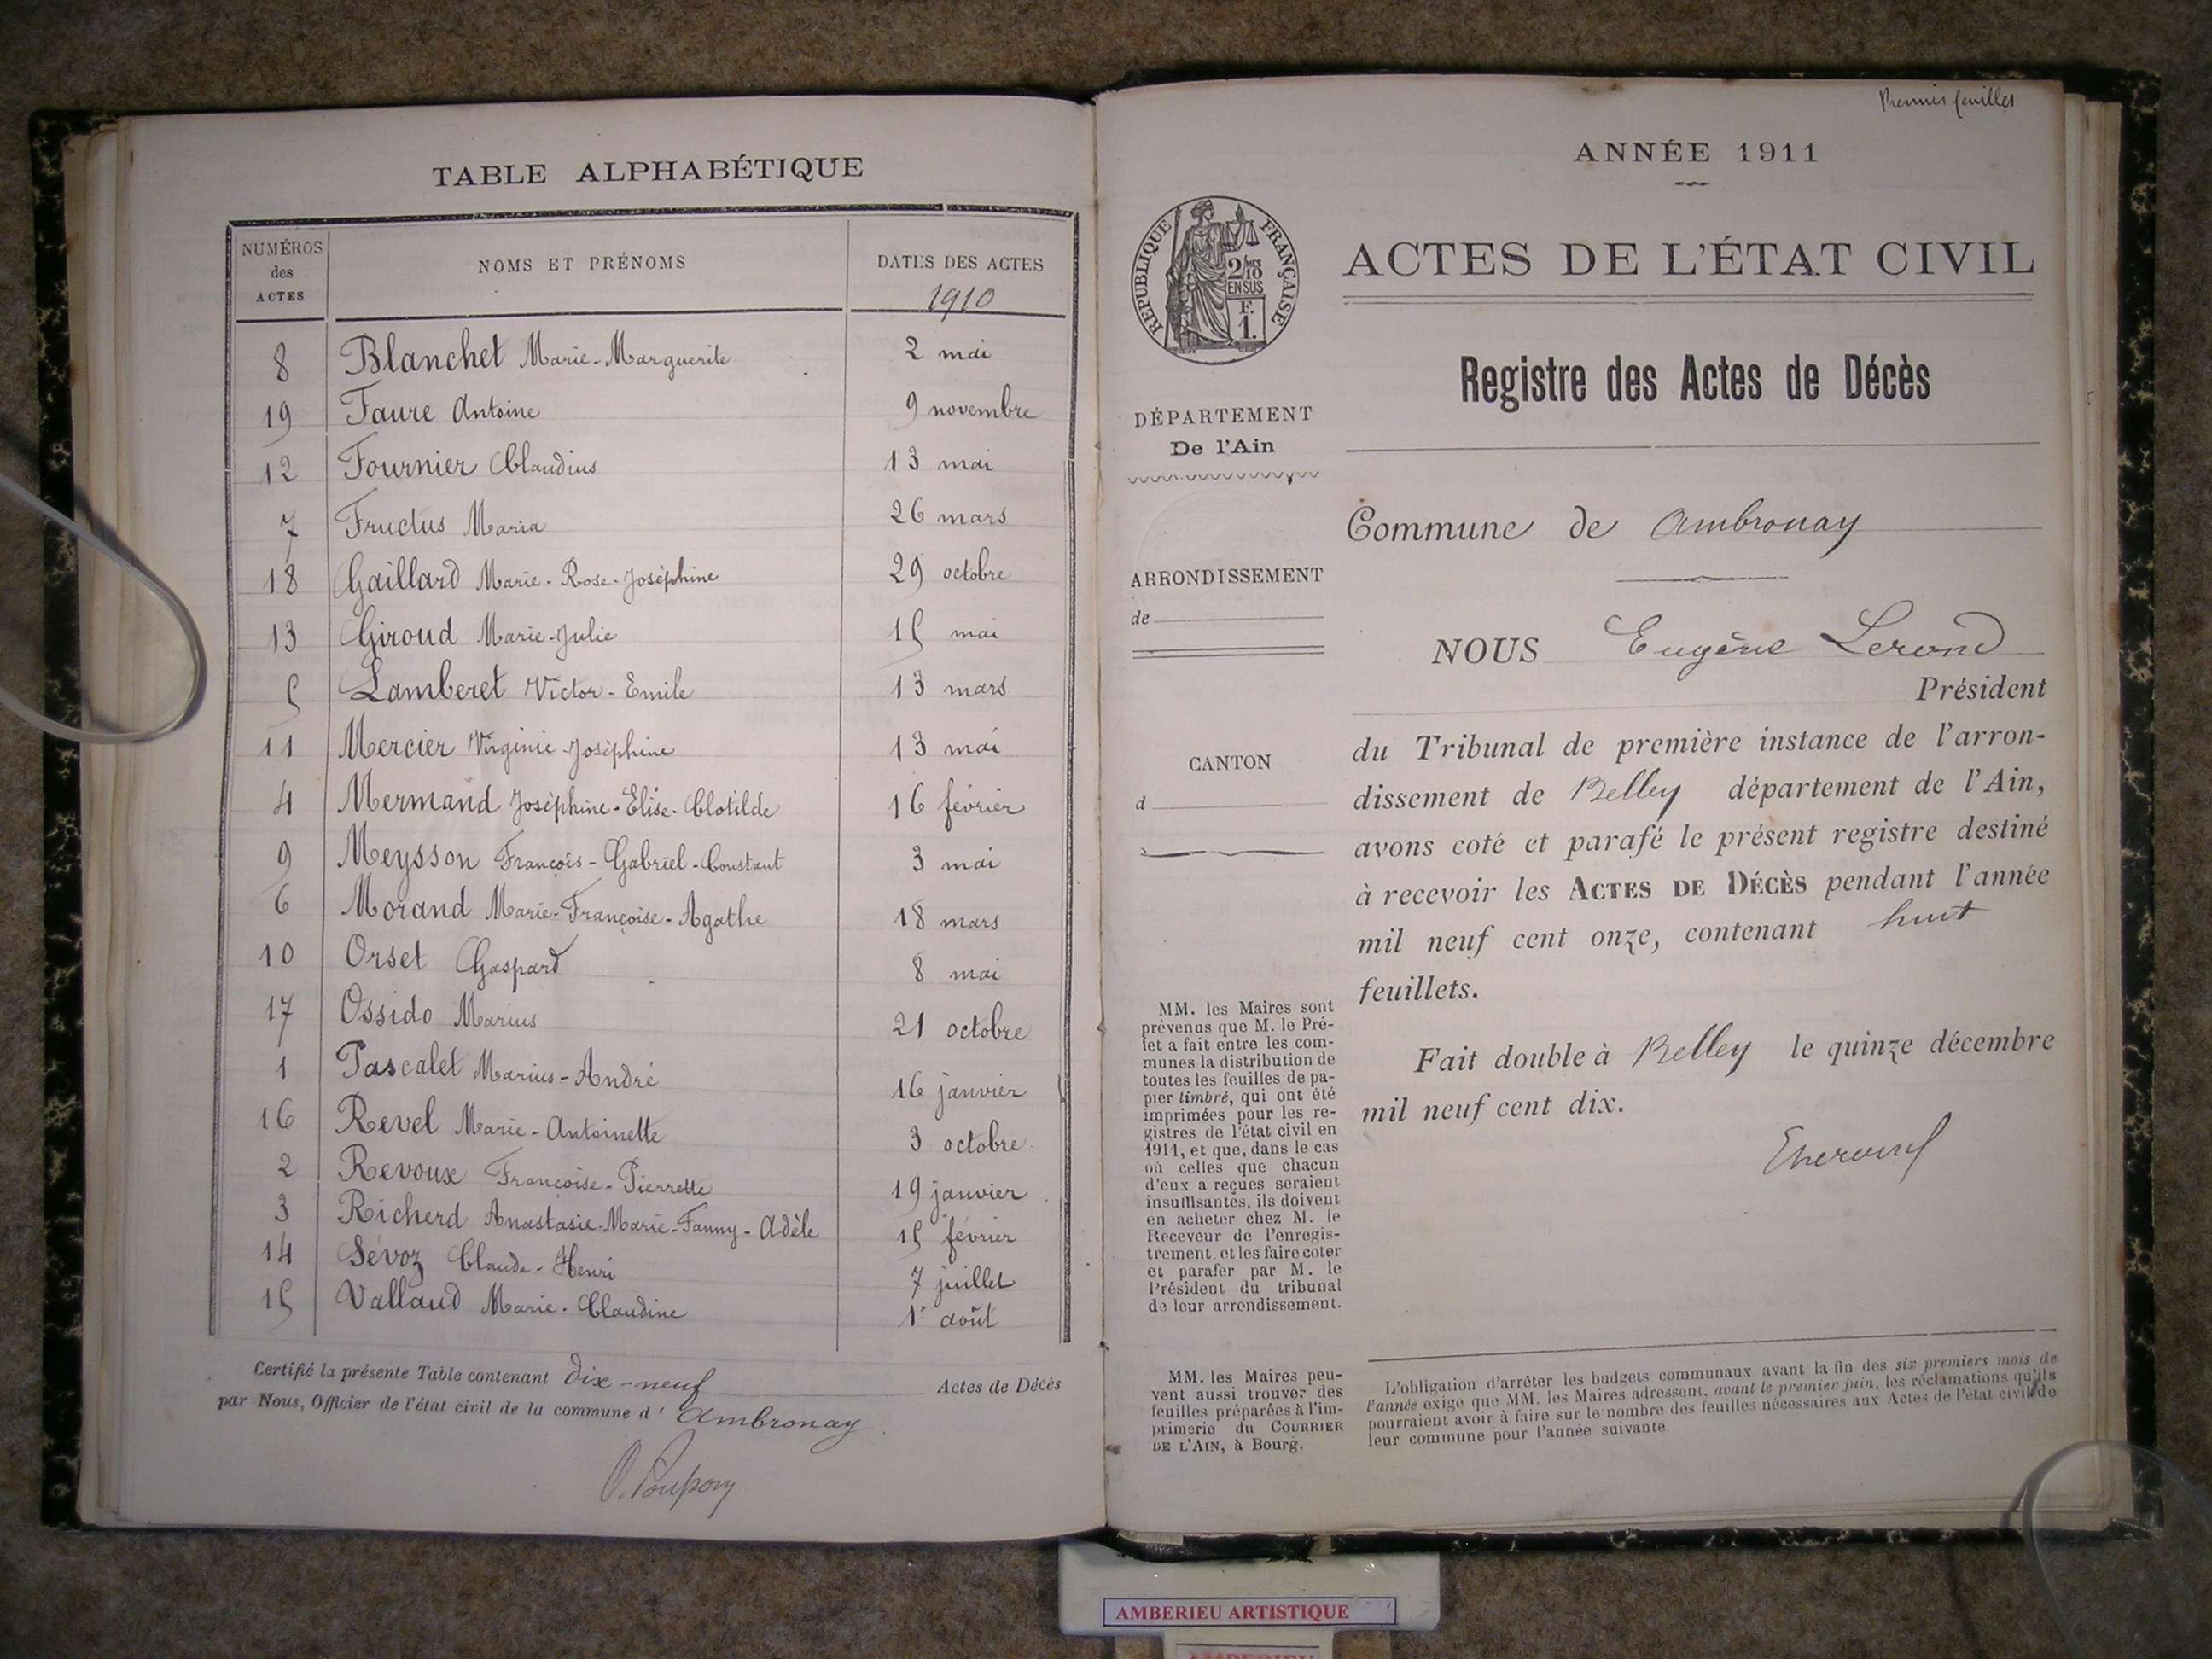 TABLE ALPHABÉTIQUE
NUMÉROS des ACTES
NOMS ET PRÉNOMS
DATES DES ACTES
1910
8 Blanchet Marie-Marguerite 2 mai
19 Faure Antoine 9 novembre
12 Fournier Claudius 13 mai
7 Fructus Maria 26 mars
18 Gaillard Marie-Rose-Joséphine 29 octobre
13 Giroud Marie-Julie 15 mai
5 Lamberet Victor-Emile 13 mars
11 Mercier Virginie Joséphine 13 mai
4 Mermand Joséphine-Elise-Clotilde 16 février
9 Meysson François-Gabriel-Constant 3 mai
6 Morand Marie-Françoise-Agathe 18 mars
10 Orset Gaspard 8 mai
17 Ossido Marius 21 octobre
1 Pascalet Marius-André 16 janvier
16 Revel Marie-Antoinette 3 octobre
2 Revoux Françoise-Pierrette 19 janvier
3 Richerd Anastasie-Marie-Fanny-Adèle 15 février
14 Sévoz Claude-Henri 7 juillet
15 Vallaud Marie-Claudine 1er août
Certifié la présente Table contenant dix-neuf Actes de Décès
par Nous, Officier de l'état civil de la commune d' Ambronay
Premier feuillet
ANNÉE 1911
RÉPUBLIQUE FRANÇAISE
2/10 MES
EN SUS
F.
1.
ACTES DE L'ÉTAT CIVIL
Registre des Actes de Décès
DÉPARTEMENT
De l'Ain
Commune de Ambronay
ARRONDISSEMENT
de
NOUS Eugène Lerond
Président
du Tribunal de première instance de l'arron-
dissement de Belley département de l'Ain,
avons coté et parafé le présent registre destiné
à recevoir les ACTES DE DÉCÈS pendant l'année
mil neuf cent onze, contenant huit
feuillets.
Fait double à Belley le quinze décembre
mil neuf cent dix.
CANTON
d
MM. les Maires sont
prévenus que M. le Pré-
fet a fait entre les com-
munes la distribution de
toutes les feuilles de pa-
pier timbré, qui ont été
imprimées pour les re-
gistres de l'état civil en
1911, et que, dans le cas
où celles que chacun
d'eux a reçues seraient
insuffisantes, ils doivent
en acheter chez M. le
Receveur de l'enregis-
trement, et les faire coter
et parafer par M. le
Président du tribunal
de leur arrondissement.
MM. les Maires peu-
vent aussi trouver des
feuilles préparées à l'im-
primerie du COURRIER
DE L'AIN, à Bourg.
L'obligation d'arrêter les budgets communaux avant la fin des six premiers mois de
l'année exige que MM. les Maires adressent, avant le premier juin, les réclamations qu'ils
pourraient avoir à faire sur le nombre des feuilles nécessaires aux Actes de l'état civil de
leur commune pour l'année suivante
AMBERIEU ARTISTIQUE
AMBERIEU